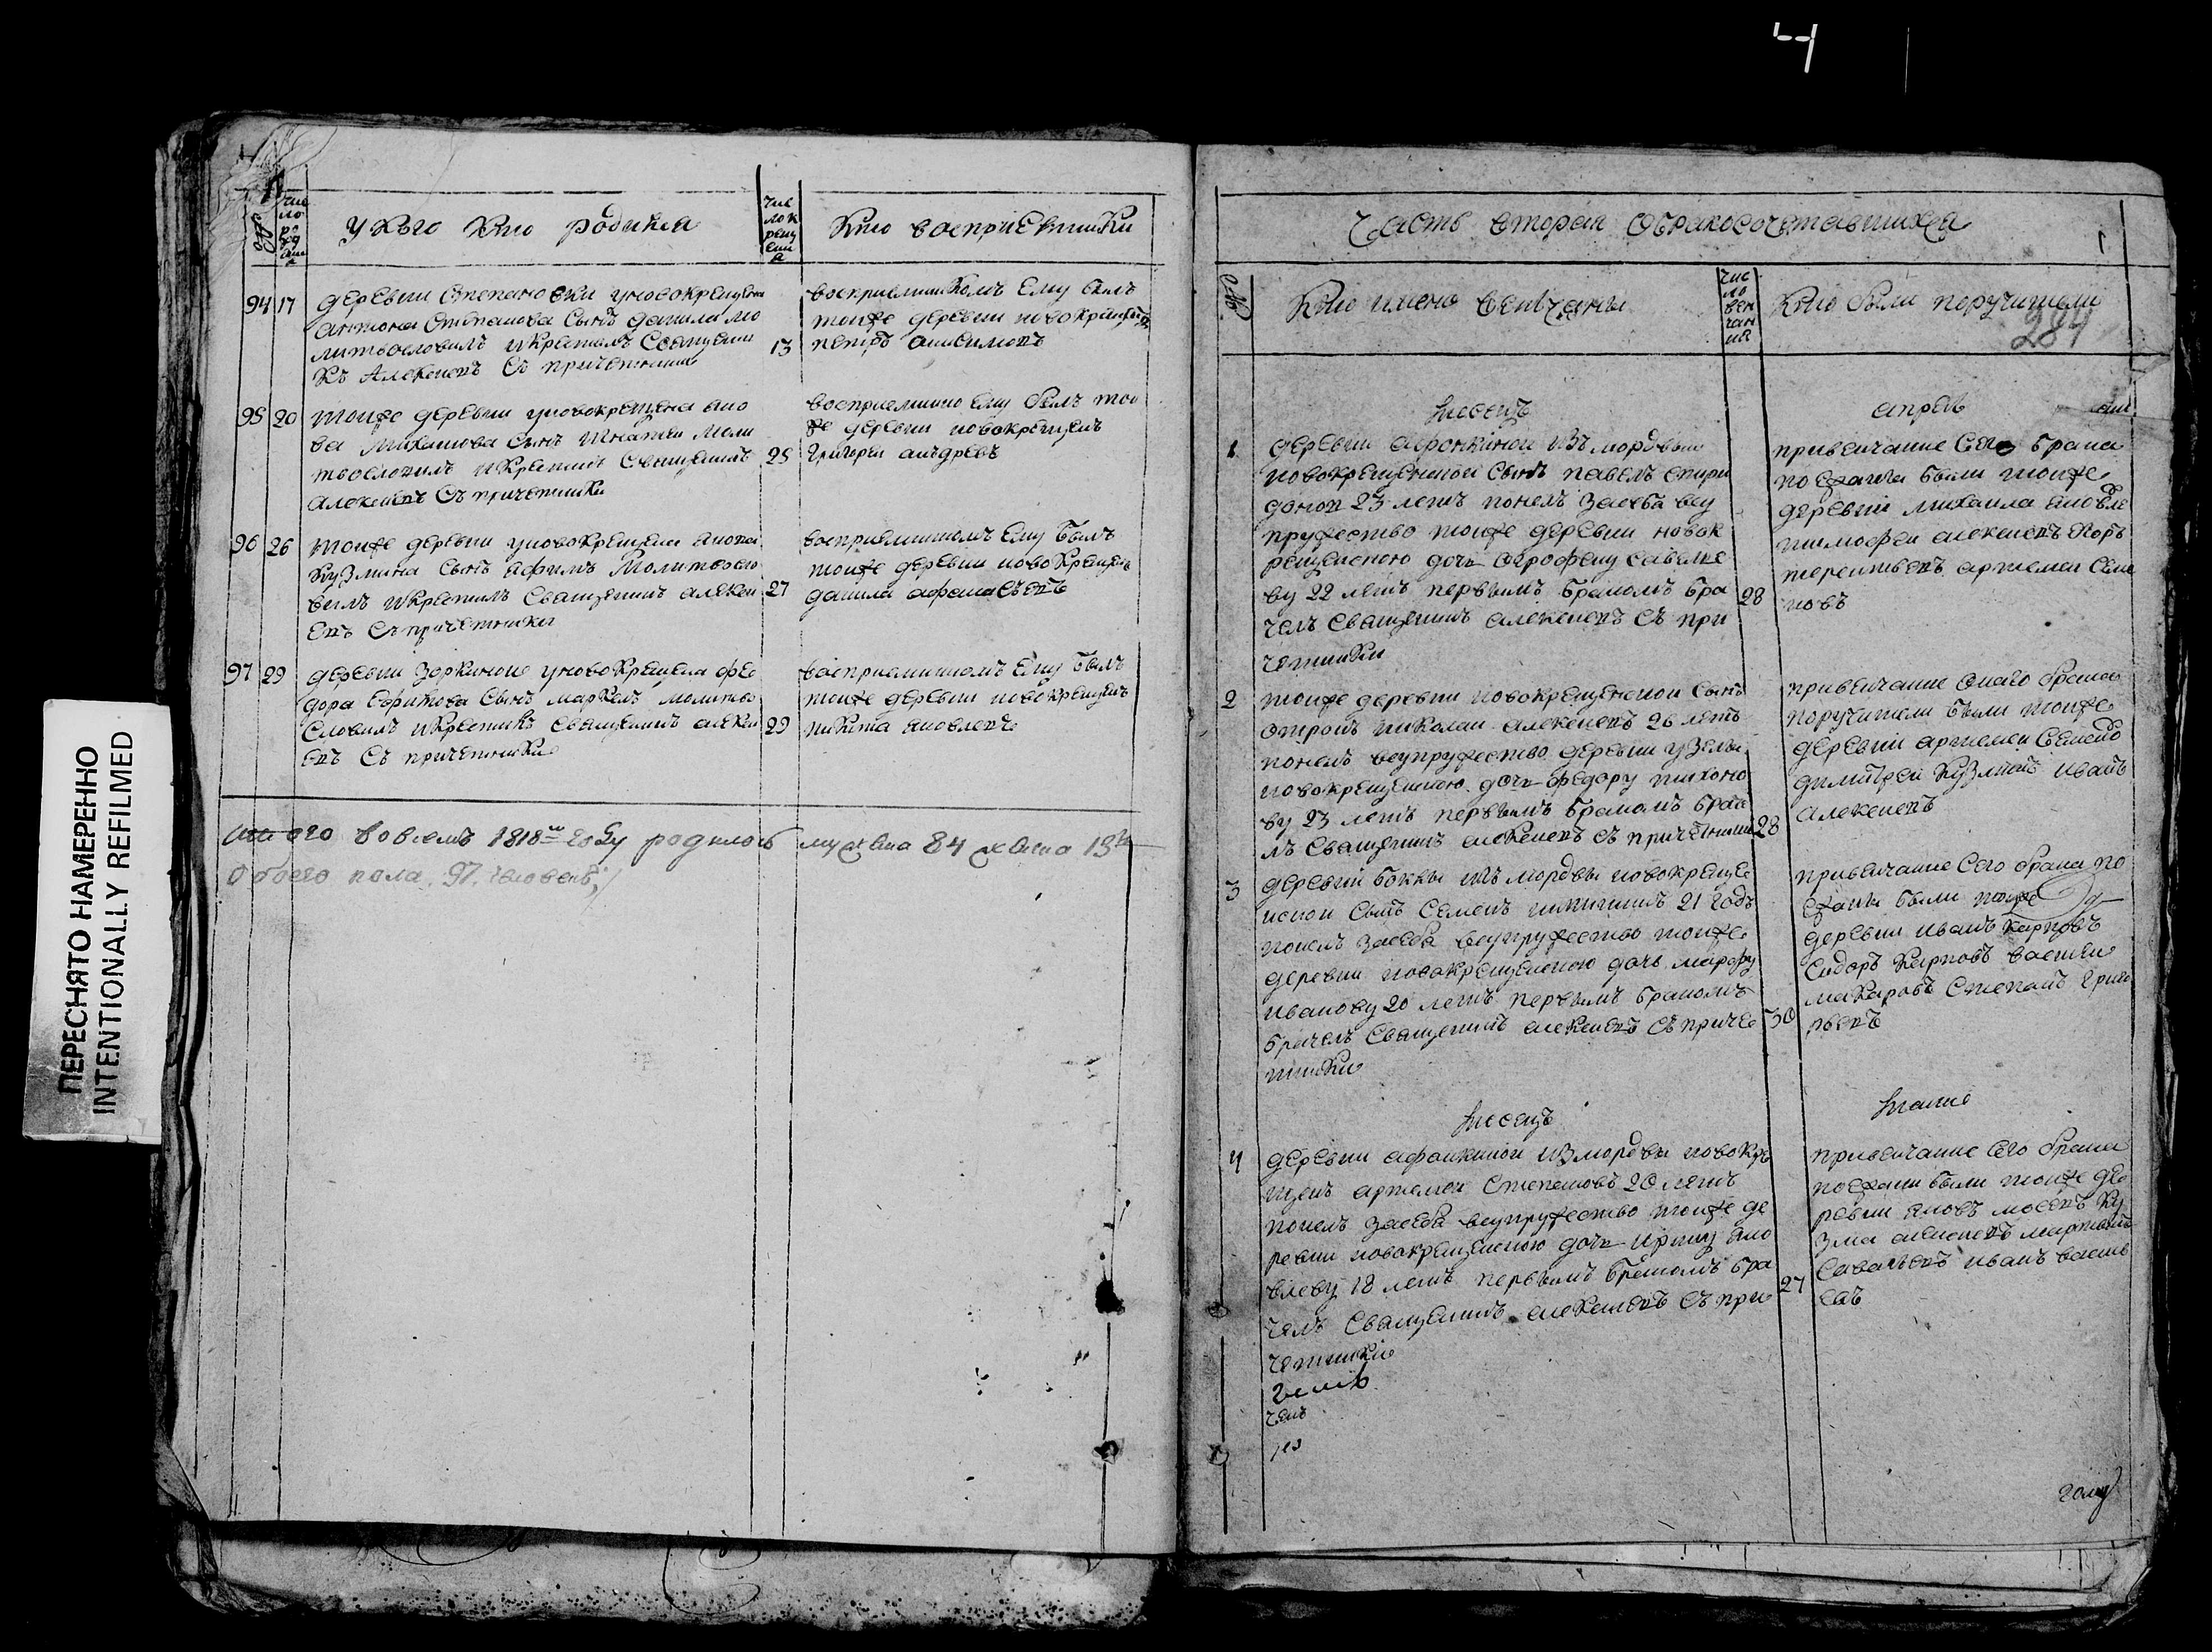 ПЕРЕСНЯТО НАМЕРЕННО
INTENTIONALLY REFILMED
№
чис
ло
ро
жд
ени
я
у кого кто родился
чис
ло к
рещ
ени
я
кто восприемники
94 17 деревни Степановки уновокрещена
антона Степанова Сынъ данила мо
литвословилъ икрестилъ Священни
къ Алексеевъ Съ причетники
13
восприемникомъ Ему былъ
тойже деревни новокрещенъ
петръ анисимовъ
95 20 тойже деревни уновокрещена яко
ва Сынъ игнатеи моли
твословилъ икрестилъ Священникъ
алексеевъ Съ причетники
25
восприемникомъ Ему былъ той
же деревни новокрещенъ
григореи андреевъ
96 26 тойже деревни уновокрещена
кузмина Сынъ афимъ Молитвосло
вилъ икрестилъ Священникъ алексе
евъ Съ причетники
27
восприемникомъ Ему былъ
тойже деревни новокрещенъ
данила афонасьевъ
97 29 деревни Зоркиной уновокрещена фео
дора Сынъ маркелъ молитво
Словилъ икрестилъ Священникъ алексе
евъ Съ причетники
29
восприемникомъ Ему былъ
тойже деревни новокрещенъ
никита яковлевъ
итого вовсемъ 1818 году родилось мужеска 84 женска 13
обоего пола 97 человекъ
Часть вторая Обракосочетавшихся
1
№
кто имено венчаны
чис
ло
вен
чан
ия
кто были поручители
284
месецъ
апрель
1 деревни афонкиной изъ мордвы
новокрещенной Сынъ павелъ спири
доновъ 23 летъ понелъ засебя всу
пружество тойже деревни новок
рещенною дочь огрофену савелье
ву 22 летъ первымъ бракомъ бра
чалъ Священникъ алексеевъ съ при
четники
28
привенчание Сего брака
поезжана были тойже
деревни михаила яковле
тимофеи алексеевъ
терентьевъ артемеи Семе
новъ
2 тойже деревни новокрещенной Сынъ
отрокъ николаи алексеевъ 26 летъ
понелъ всупружество деревни узелы
новокрещенною дочь федору тихоно
ву 23 летъ первымъ бракомъ брача
лъ Священникъ алексеевъ съ причетники
28
привенчание онаго брака
поручители были тойже
деревни артемеи Семено
димитреи кузминъ иванъ
алексеевъ
3 деревни боклы изъ мордвы новокреще
нной Сынъ Семенъ никитинъ 21 годъ
понелъ засебя всупружество тойже
деревни новокрещенною дочь марфу
иванову 20 летъ первымъ бракомъ
брачалъ Священникъ алексеевъ Съ приче
тники
30
привенчание Сего брака по
езжана были тойже
деревни иванъ карповъ
Сидоръ карповъ васили
макаровъ Степанъ григо
рьевъ
месецъ
маие
4 деревни афонкиной измордвы новокре
щенъ артемеи Степановъ 20 летъ
понелъ засебя всупружество тойже де
ревни новокрещенною дочь ирину яко
влеву 18 летъ первымъ бракомъ бра
чалъ Священникъ алексеевъ Съ при
четники
27
привенчание Сего брака
поезжани были тойже де
ревни яковъ мосеевъ ку
зма мартынъ
Савельевъ иванъ василь
евъ